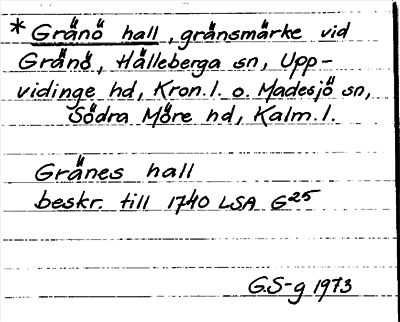 * Gränö hall, gränsmärke vid
Gränö, Hälleberga sn, Upp-
vidinge hd, Kron.l. o. Madesjö sn,
Södra Möre hd, Kalm.l.
Gränes hall
beskr. till 1740 LSA G25
G.S-g 1973